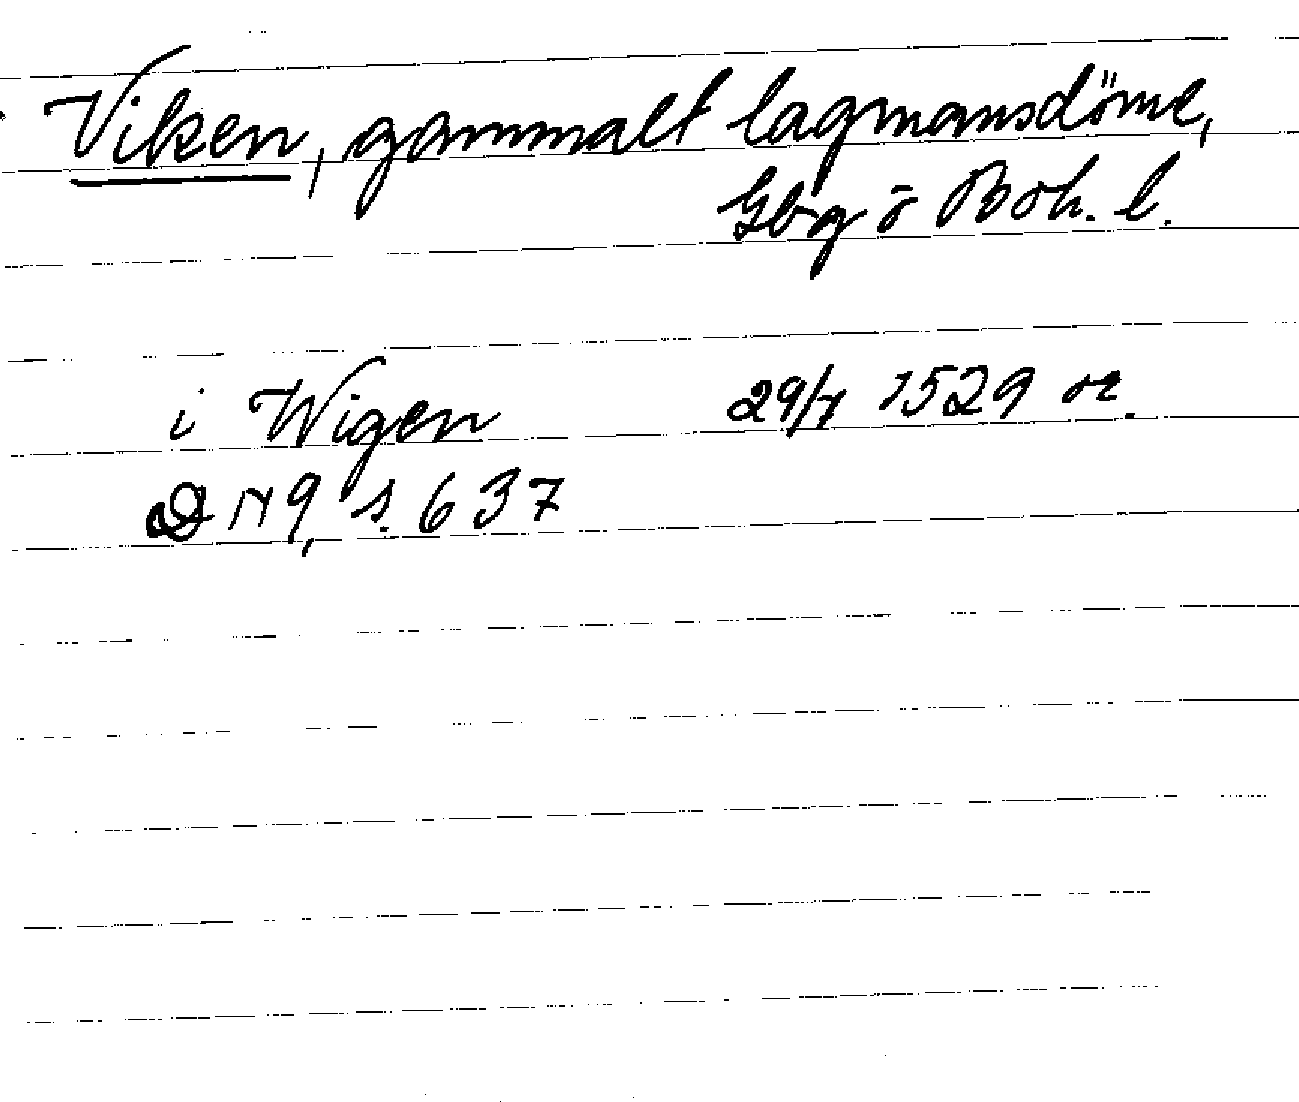 Viken, gammalt lagmansdöme,
Gbg o Boh. l.
i Wigen 29/7 1529 or.
DN 9, s. 637